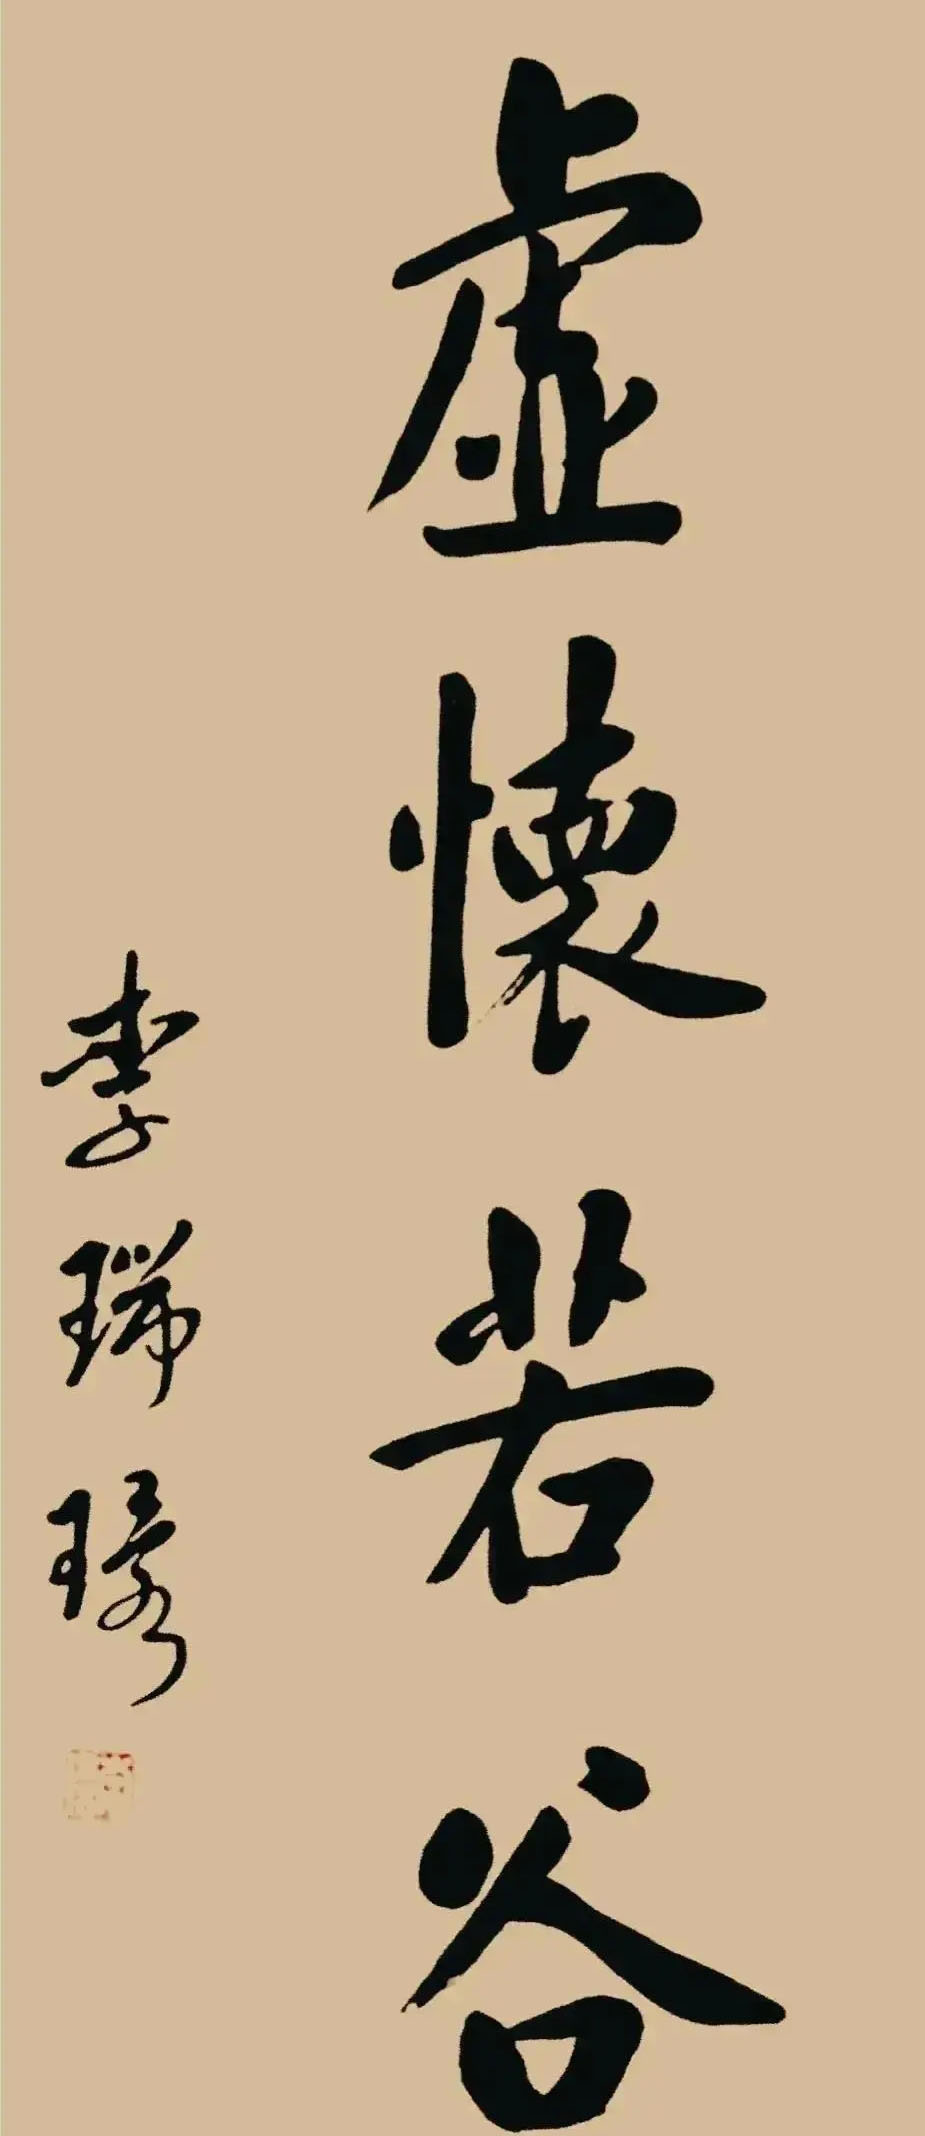 虚懷若谷
李瑞環